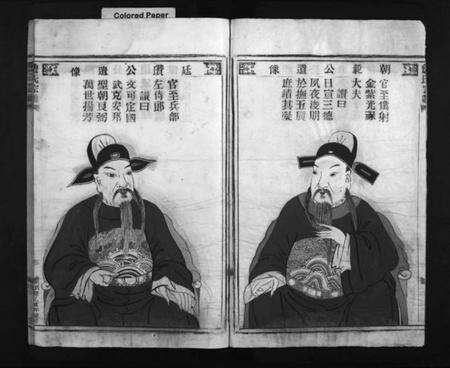 Colored Paper
朝載公遺像
官至僕射
金紫光祿
大夫
讚曰
日宣三德
夙夜浚明
於撫五辰
庶績其凝
廷公遺像
官至兵部
左侍郎
讚曰
文可定國
武克安邦
聖朝良弼
萬世揚芳